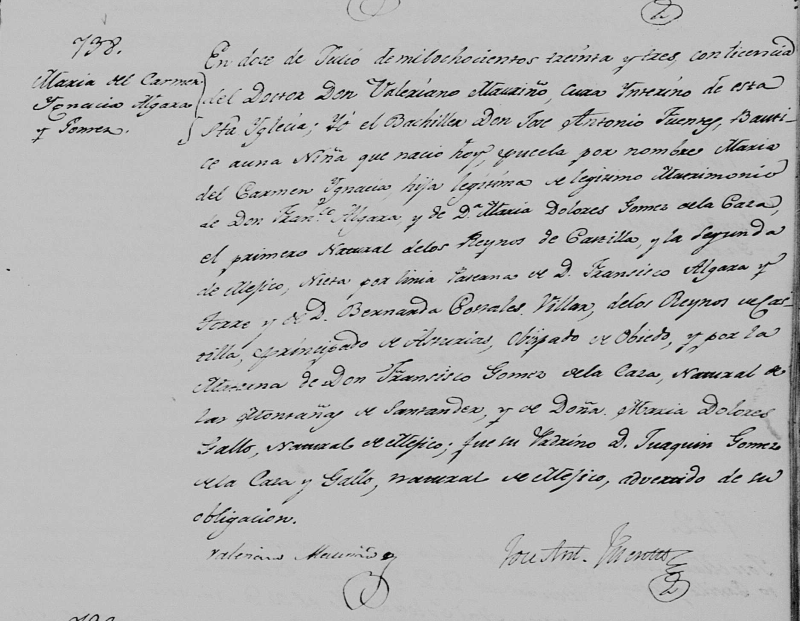 738.
Maria del Carmen
Ygnacia Algara
y Gomez.
En doce de Julio de mil ochocientos treinta y tres, con licencia
del Doctor Don Valeriano Mauriño, cura Ynterino de esta
Sta Yglecia; Yó el Bachiller Don Jose Antonio Fuentes, Bauti-
cé auna Niña que nació hoy, pusela por nombre Maria
del Carmen Ygnacia, hija legitima de legitimo Matrimonio
de Don Franco. Algara, y de Da. Maria Dolores Gomez dela Caza,
el primero Natural delos Reynos de Castilla, y la Segunda
de Megico, Nieta por linia Paterna de D. Francisco Algara y
Torre, y de D. Bernarda Corrales Villar, delos Reynos de Cas-
tilla, principado de Asturias, Obispado de Obiedo, y por la
Materna de Don Francisco Gomez dela Caza, Natural de
las Montañas de Santander, y de Doña Maria Dolores
Gallo, Natural de Megico; fue su Padrino D. Juaquin Gomez
dela Caza y Gallo, natural de Megico, advertido de su
obligacion.
Valeriano Mauriño
Jose Ant. Fuentes